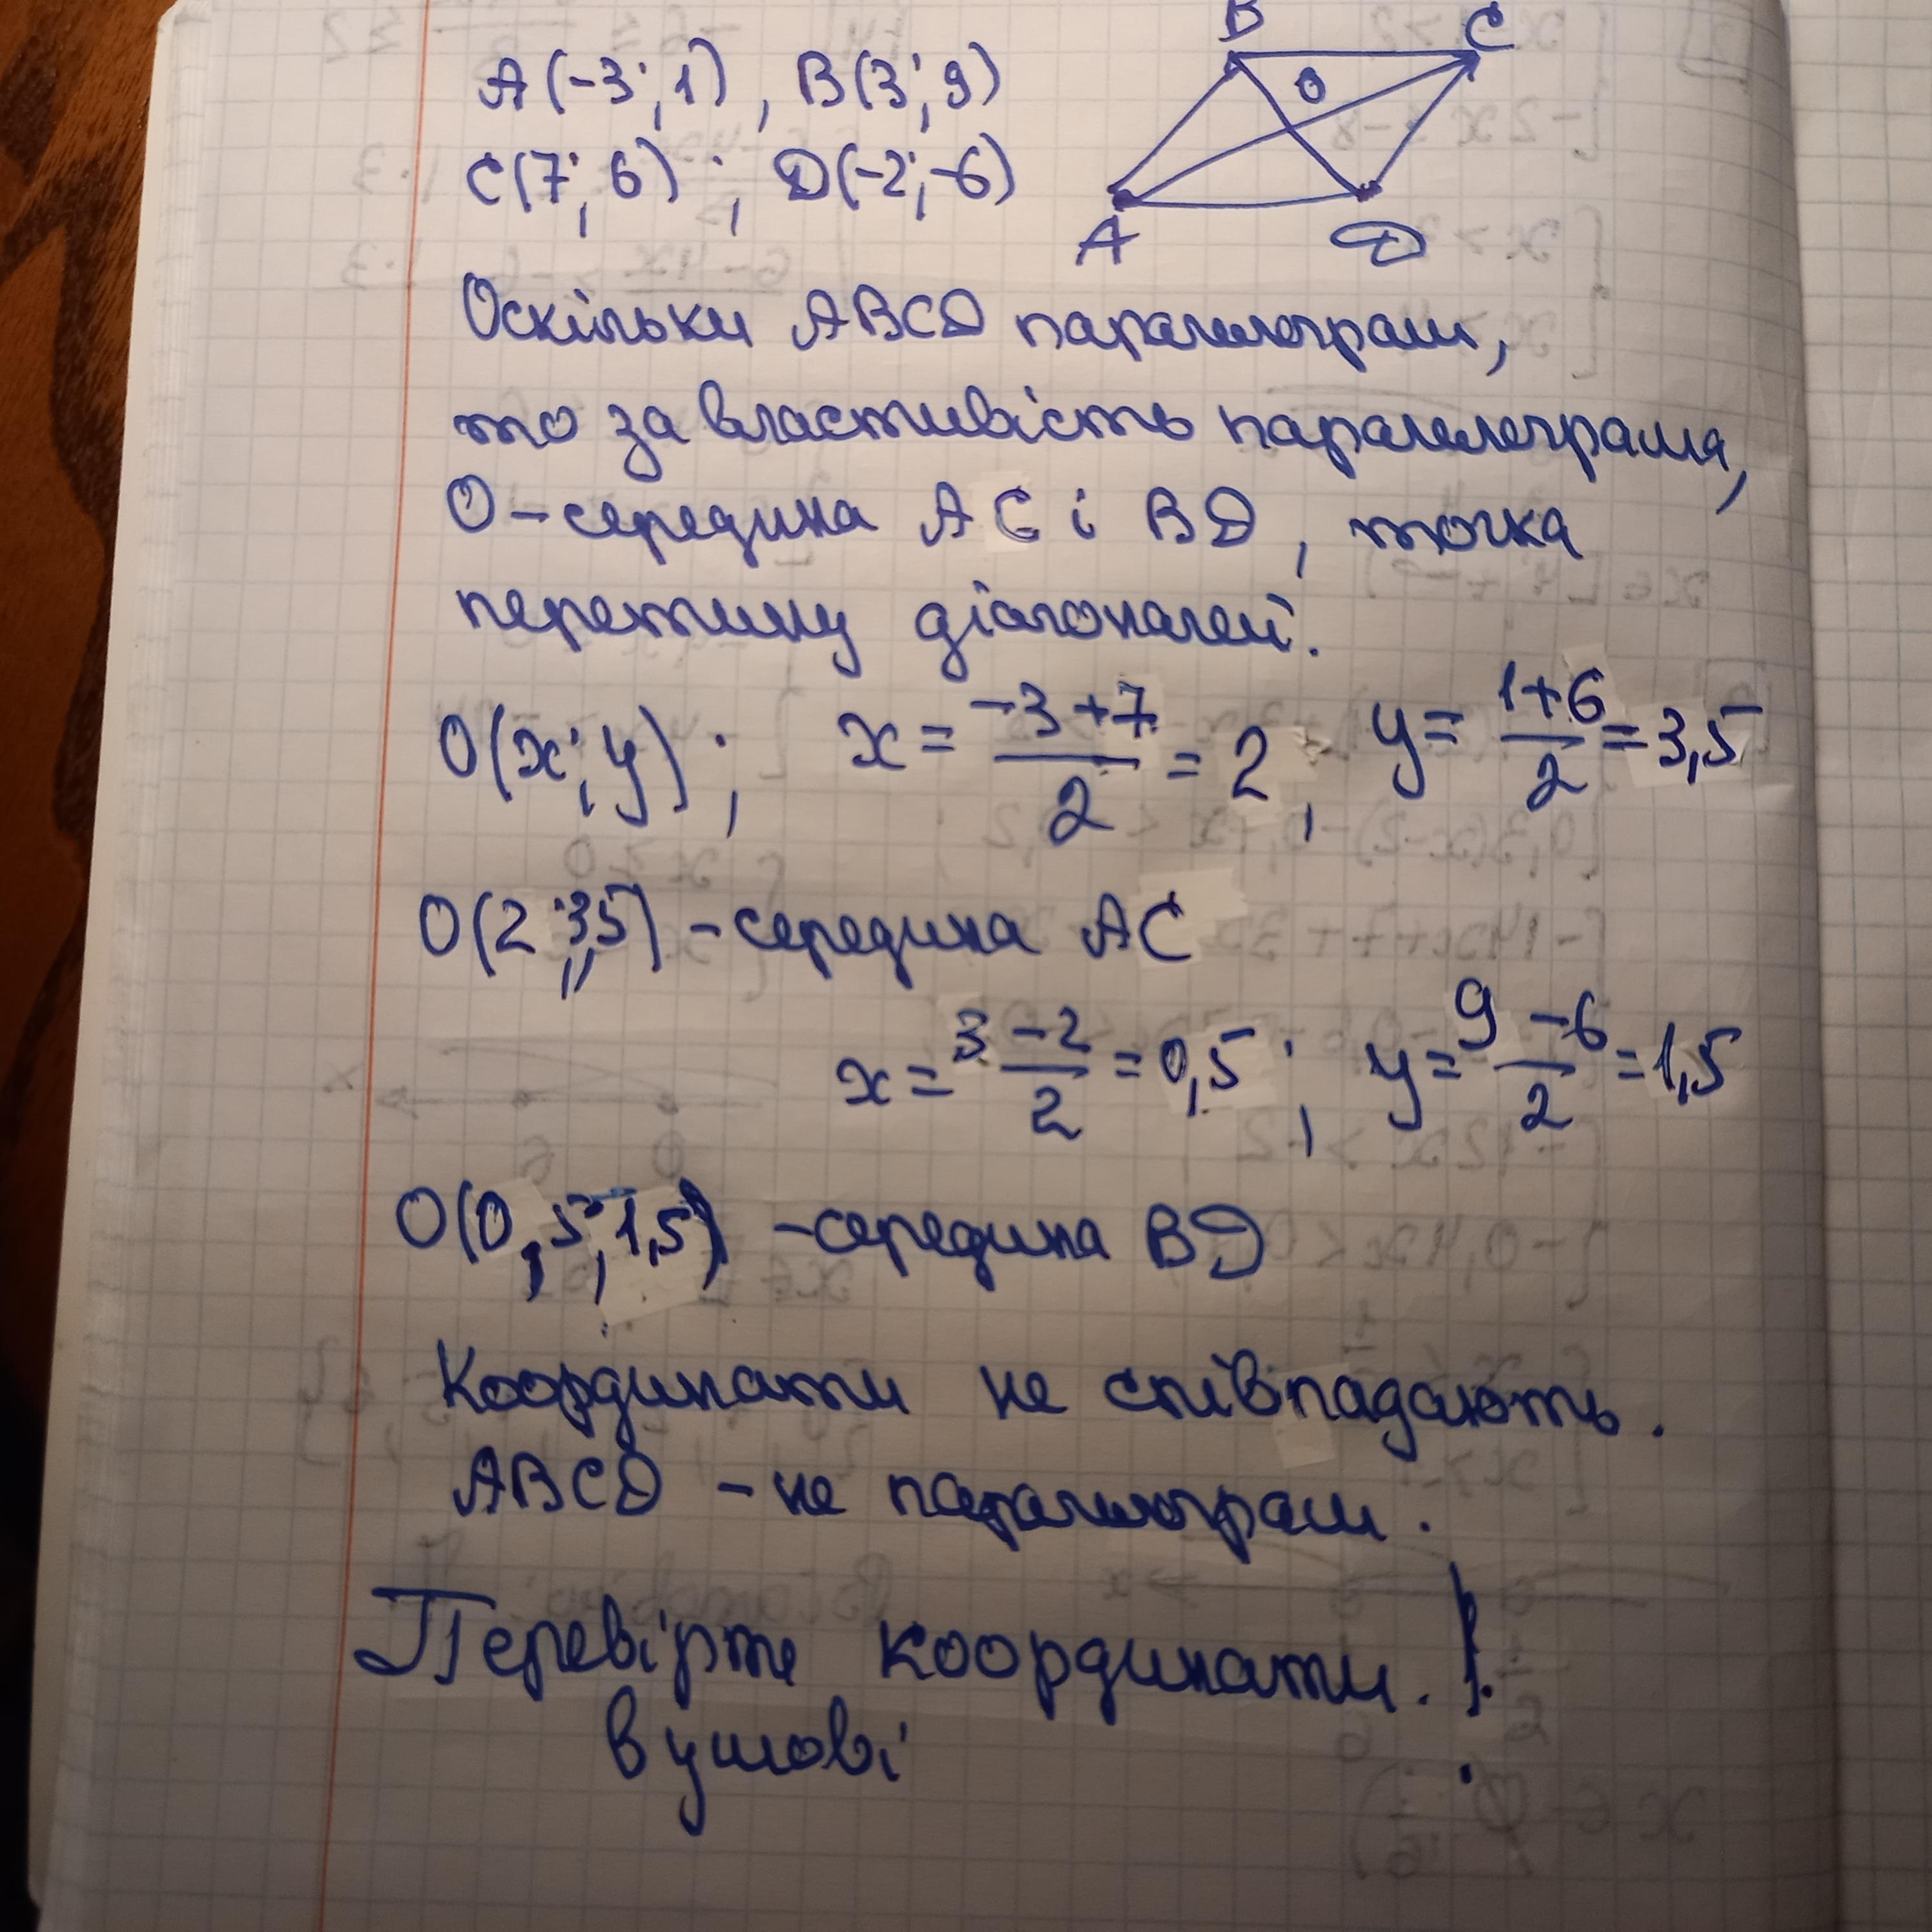 B C
A(-3; 1), B(3; 9)
O
C(7; 6); D(-2; -6)
A D
Оскільки ABCD паралелограм,
то за властивість паралелограма,
О - середина AC і BD, точка
перетину діагоналей.
O(x; y); x = (-3+7)/2 = 2; y = (1+6)/2 = 3,5
O(2; 3,5) - середина AC
x = (3-2)/2 = 0,5; y = (9-6)/2 = 1,5
O(0,5; 1,5) - середина BD
Координати не співпадають.
ABCD - не паралелограм.
Перевірте координати. !
в умові